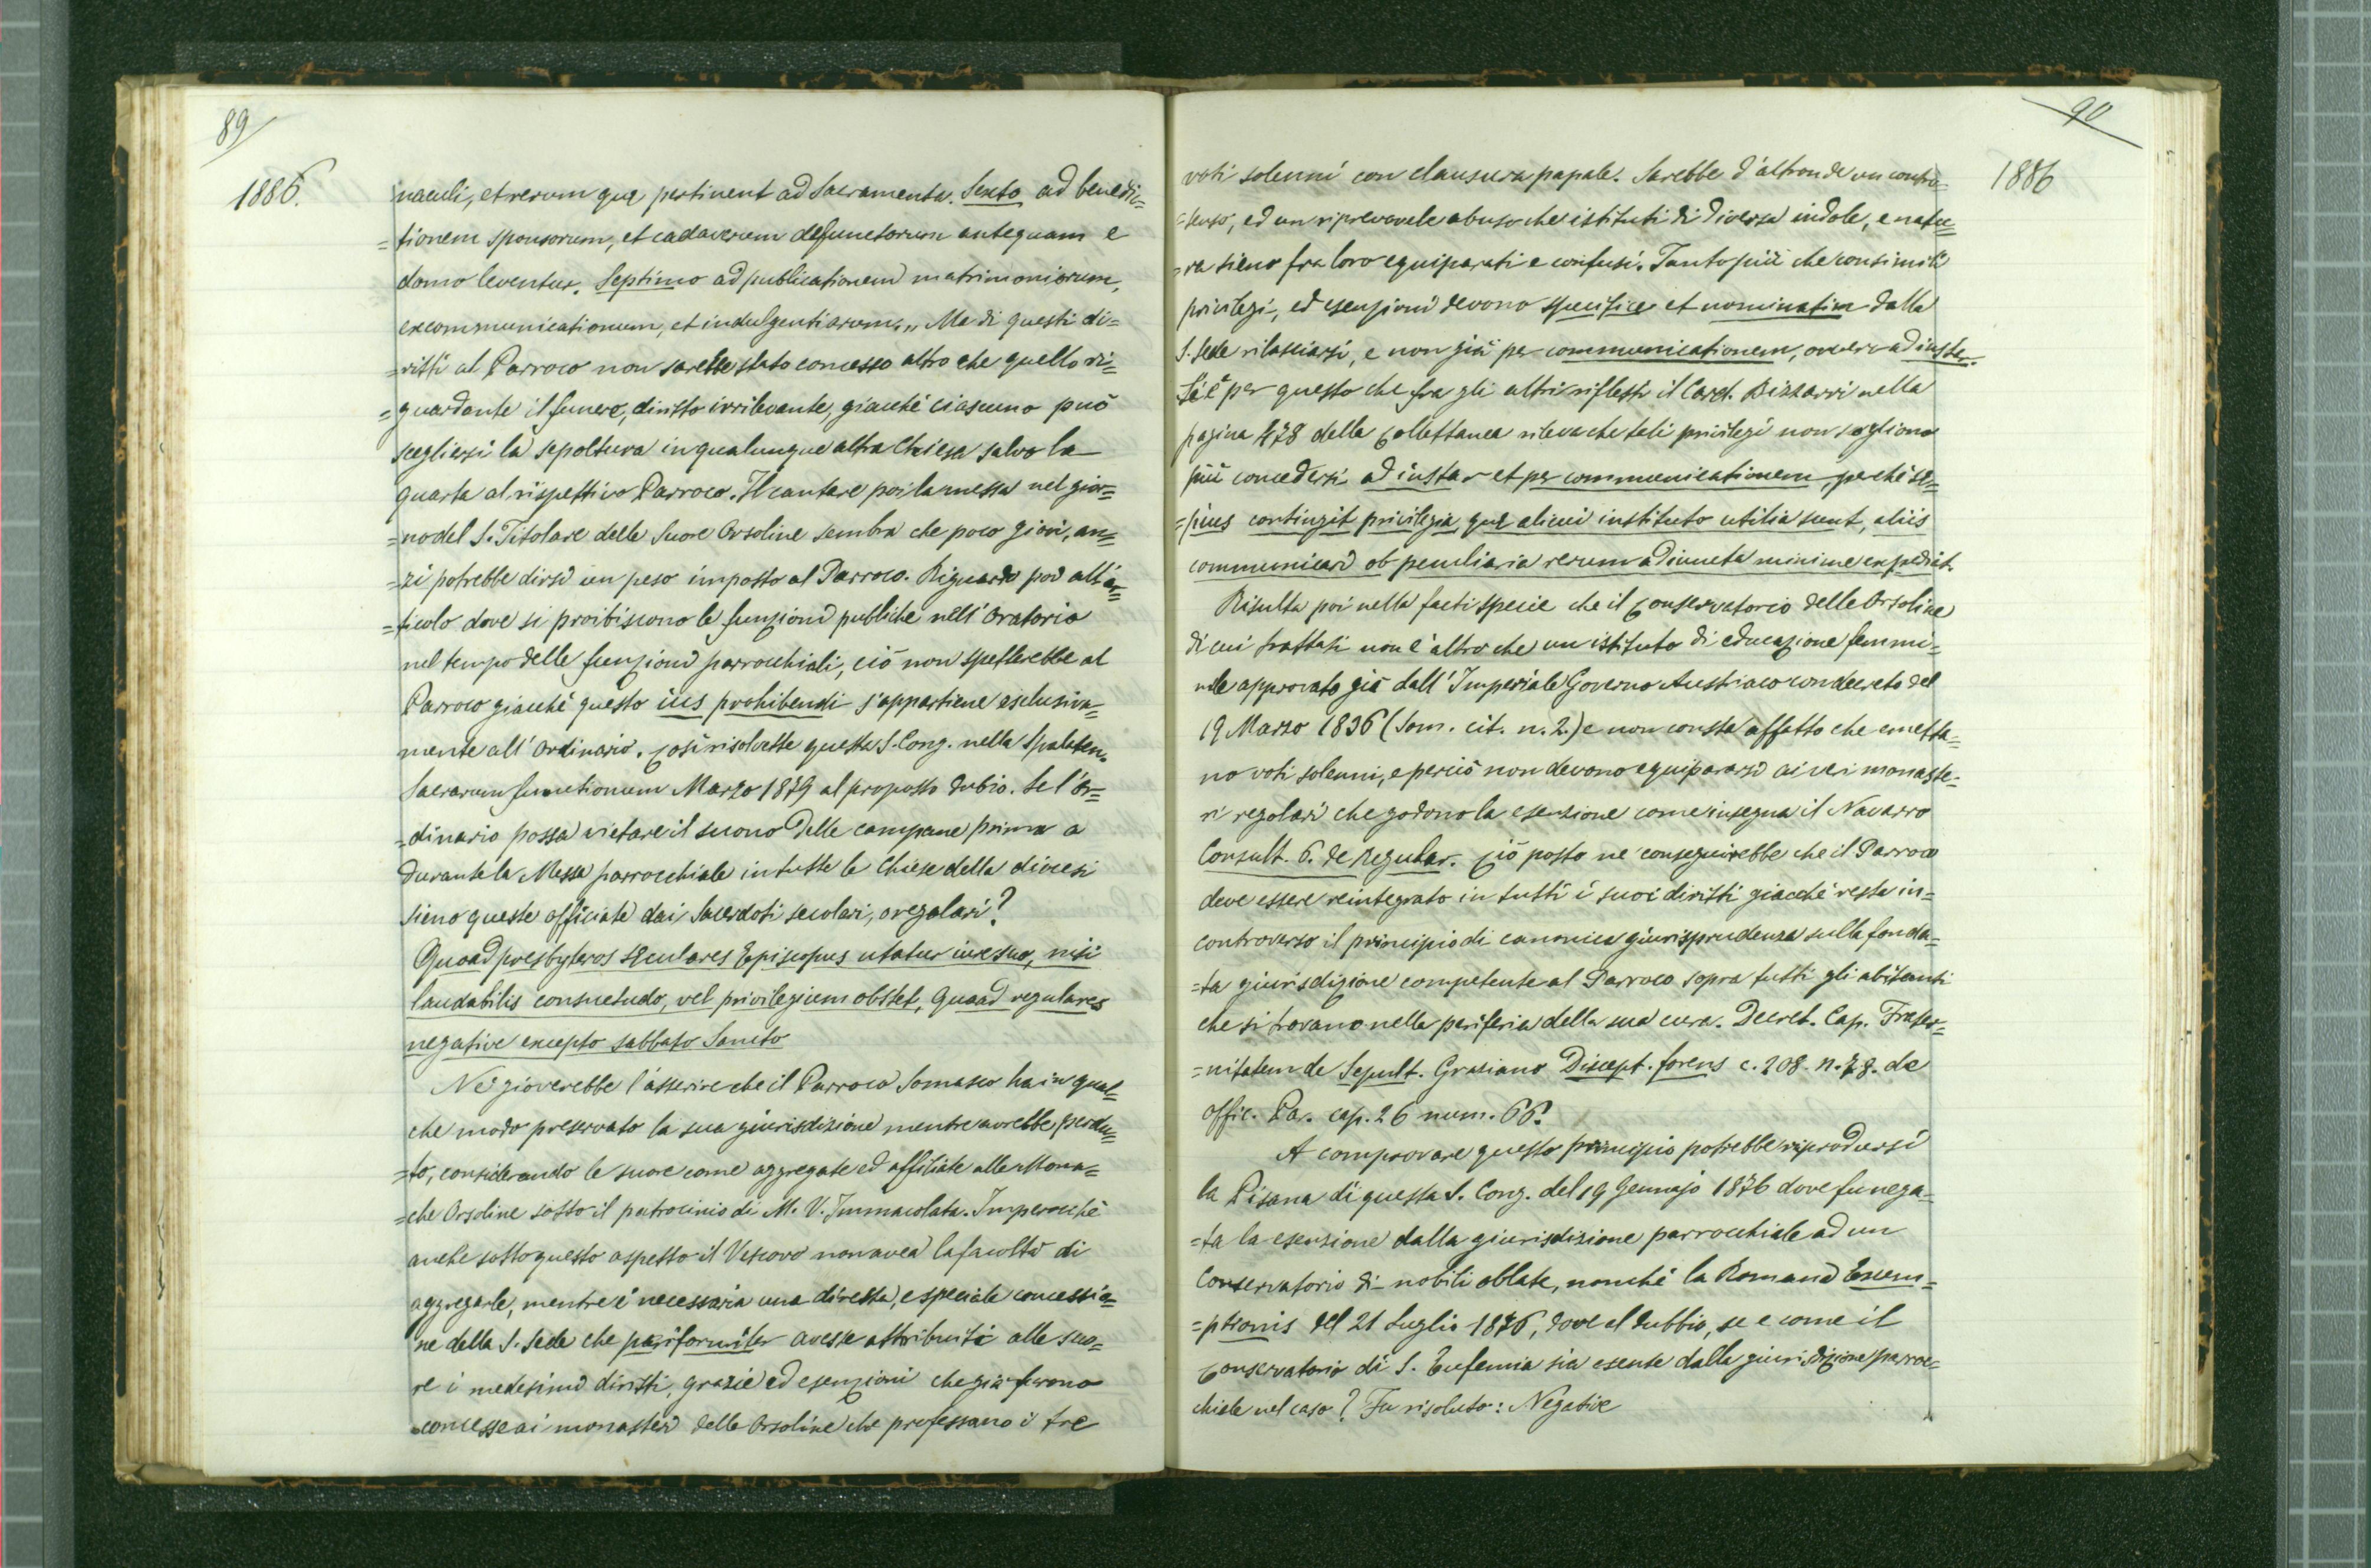 89
1886.
naculi, et rerum quę pertinent ad Sacramenta. Sexto ad benedic=
=tionem sponsorum, et cadaverum defunctorum antequam e
domo leventur. Septimo ad publicationem matrimoniorum,
excommunicationum, et indulgentiarum.„ Ma di questi di=
=ritti al Parroco non sarebbe stato concesso altro che quello ri=
=guardante il funere, diritto irrilevante, giacchè ciascuno può
scegliersi la sepoltura in qualunque altra Chiesa salvo la
quarta al rispettivo Parroco. Il cantare poi la messa nel gior=
=no del S. Titolare delle Suore Orsoline sembra che poco giovi, an=
=zi potrebbe dirsi un peso imposto al Parroco. Riguardo poi all'ar=
=ticolo dove si proibiscono le funzioni pubbliche nell'Oratorio
nel tempo delle funzioni parrocchiali, ciò non spetterebbe al
Parroco giacchè questo ius prohibendi s'appartiene esclusiva=
mente all'Ordinario. Così risolvette questa S. Cong. nella Spalaten.
Sacrarum functionum Marzo 1879 al proposto dubio. Se l'Or=
=dinario possa vietare il suono delle campane prima a
durante la Messa parrocchiale in tutte le Chiese della diocesi
sieno queste officiate dai Sacerdoti secolari, o regolari?
Quoad presbyteros sęculares Episcopus utatur iure suo, nisi
laudabilis consuetudo, vel privilegium obstet, Quoad regulares
negative excepto sabbato Sancto
Nè gioverebbe l'asserire che il Parroco Somasco ha in qual=
che modo preservato la sua giurisdizione mentre avrebbe perdu=
=to, considerando le suore come aggregate ed affiliate alle Mona=
=che Orsoline sotto il patrocinio di M. V. Immacolata. Imperocchè
anche sotto questo aspetto il Vescovo non avea la facoltà di
aggregarle, mentre è necessaria una diretta, e speciale concessio=
ne della S. Sede che pariformiter avesse attribuiti alle suo=
re i medesimi diritti, grazie ed esenzioni che già furono
concesse ai monasteri delle Orsoline che professano i tre
90
1886
voti solenni con clausura papale. Sarebbe d'altronde un contro=
=senso, ed un riprovevole abuso che istituti di diversa indole, e natu=
=ra sieno fra loro equiparati e confusi. Tanto più che consimili
privilegi, ed esenzioni devono specifice et nominatim dalla
S. Sede rilasciarsi, e non già per communicationem, ovvero ad instar.
Si è per questo che fra gli altri riflessi il Card. Bizzarri nella
pagina 478 della Collettanea rileva che tali privilegi non sogliono
più concedersi ad instar et per communicationem, perchè sę=
=pius contingit privilegia, quę alicui instituto utilia sunt, aliis
communicari ob peculiaria rerum adiuncta minime expediat.
Risulta poi nella fatti specie che il Conservatorio delle Orsoline
di cui trattasi non è altro che un istituto di educazione femmi=
nile approvato già dall'Imperiale Governo Austriaco con decreto del
19 Marzo 1836 (Som. cit. n. 2.) e non consta affatto che emetta=
no voti solenni, e perciò non devono equipararsi ai veri monaste=
ri regolari che godono la esenzione come insegna il Navarro
Consult. 6. de Regular. Ciò posto ne conseguirebbe che il Parroco
deve essere reintegrato in tutti i suoi diritti giacchè resta in=
controverso il principio di canonica giurisprudenza sulla fonda=
=ta giurisdizione competente al Parroco sopra tutti gli abitanti
che si trovano nella periferia della sua cura. Decret. Cap. Frater=
=nitatem de Sepult. Graziano Discept. forens c. 208. n. 78. de
offic. Par. cap. 26 num. 66.
A comprovare questo principio potrebbe riprodursi
la Pisana di questa S. Cong. del 19 Gennajo 1876 dove fu nega=
=ta la esenzione dalla giurisdizione parrocchiale ad un
Conservatorio di nobili oblate, nonchè la Romana Exem=
=ptionis del 21 Luglio 1876, dove al dubbio, se e come il
Conservatorio di S. Eufemia sia esente dalla giurisdizione parroc=
chiale nel caso? Fu risoluto: Negative